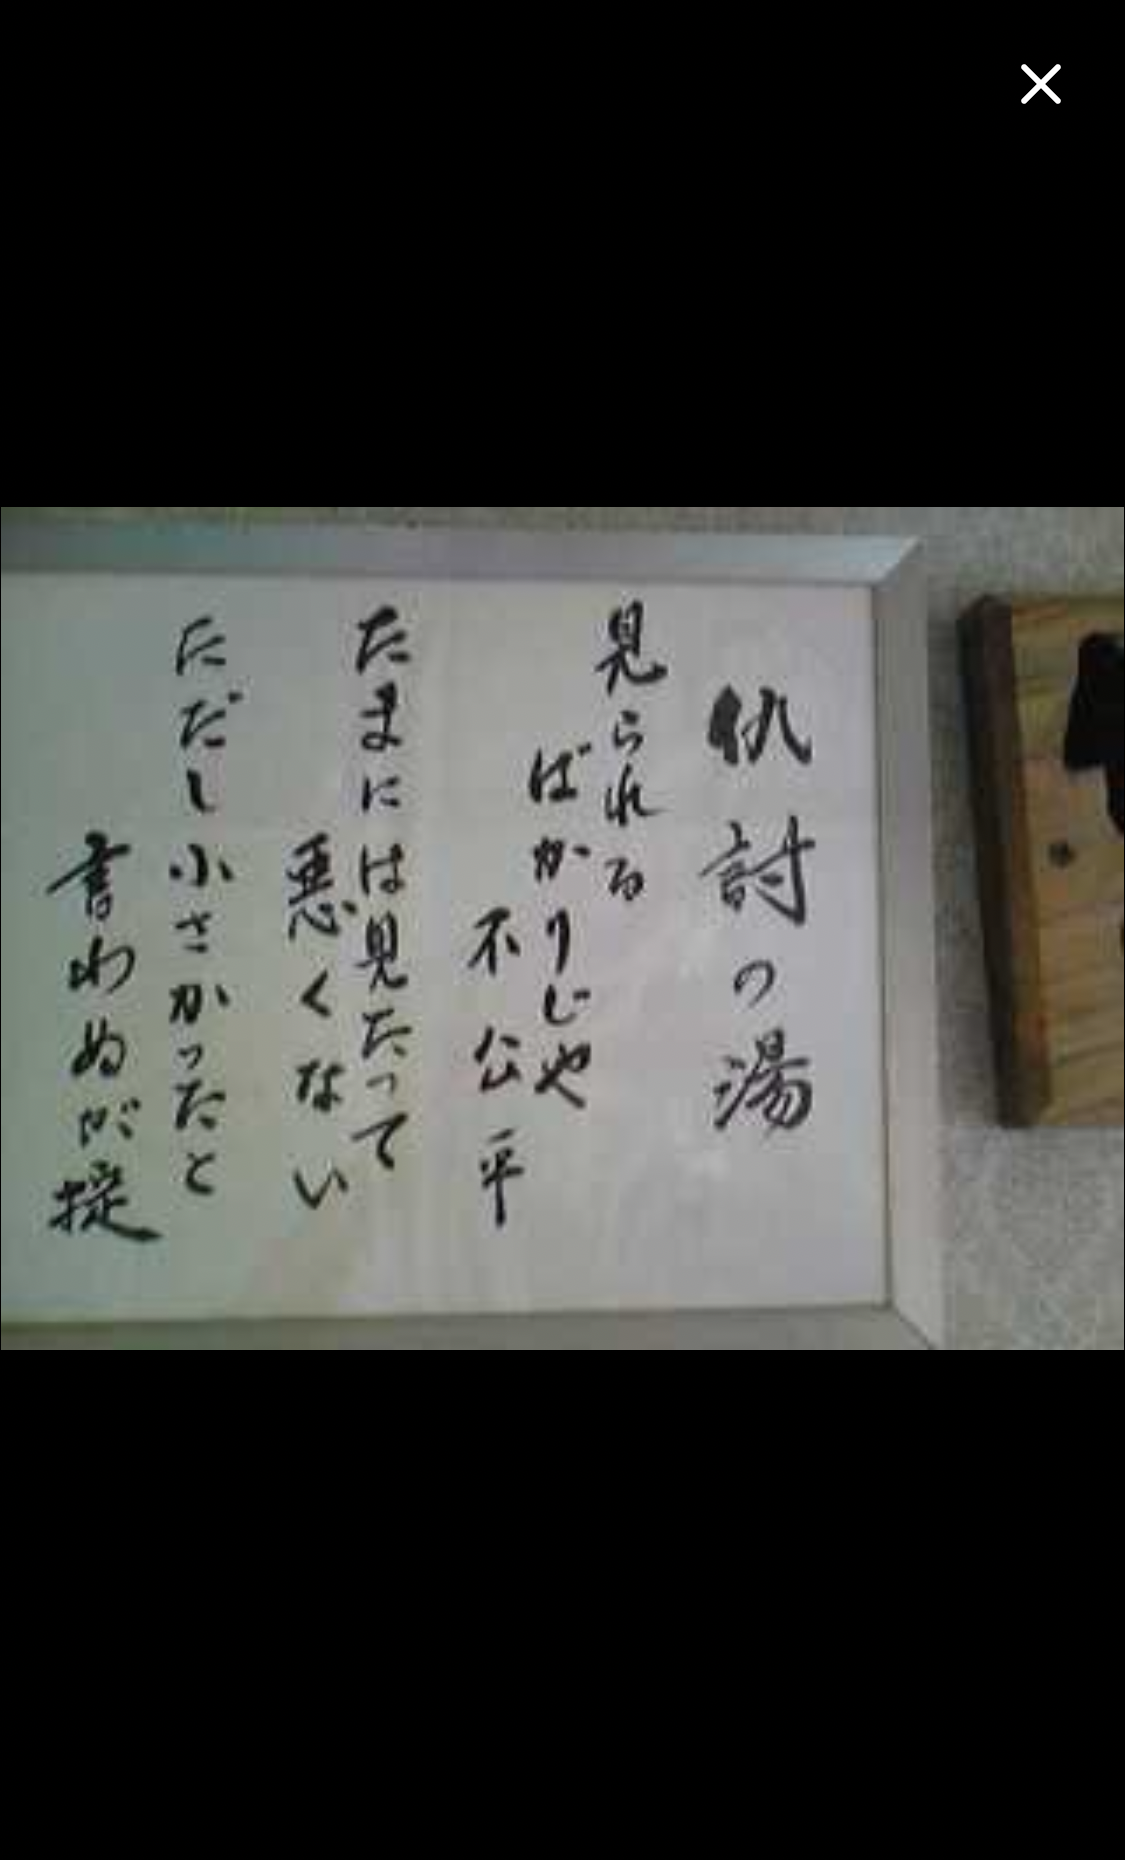 仇討の湯
見られる
ばかりじゃ
不公平
たまには見たって
悪くない
ただし小さかったと
言わぬが掟